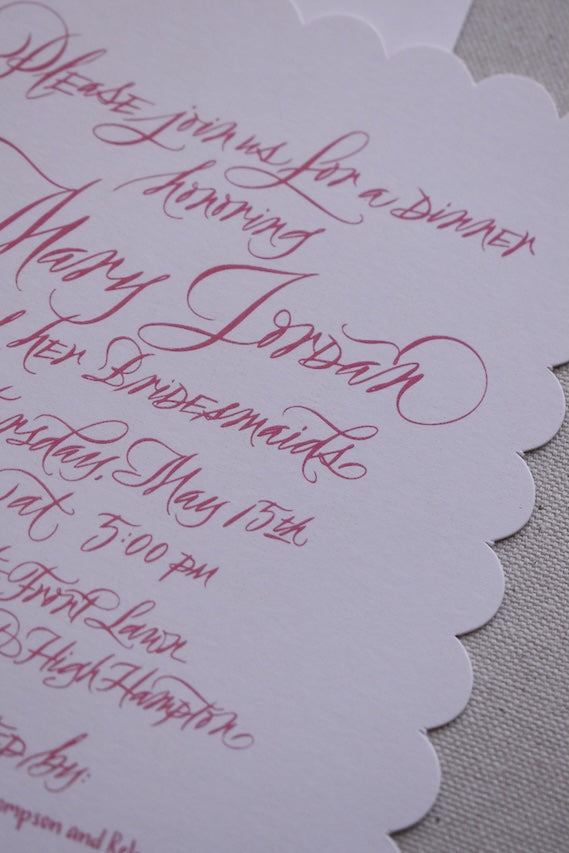 Please join us for a Dinner
honoring
Mary Jordan
her Bridesmaids
rsday, May 15th
at 5:00 pm
Front Lawn
@ High Hampton
by:
ompson and